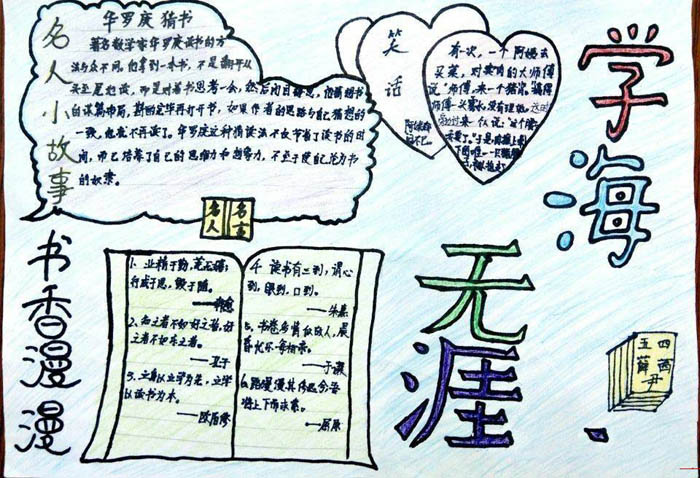 学海
无涯
名人小故事
华罗庚 猜书
著名数学家华罗庚读书的方
法与众不同。他拿到一本书，不是翻开从
头至尾地读，而是对着书思考一会，然后闭目静思，他猜想书
的谋篇布局，斟酌完毕再打开书，如果作者的思路与自己猜想的
一致，他就不再读了。华罗庚这种猜读法不仅节省了读书的时
间，而且培养了自己的思维力和想象力，不至于使自己沦为书
的奴隶。
笑话
有一次，一个阿姨去
买菜，对卖肉的大师傅
说：“师傅，来一个猪肾，
名人名言
1、业精于勤，荒于嬉；
行成于思，毁于随。
2、知之者不如好之者，好
之者不如乐之者。
——孔子
3、立身以立学为先，立学
以读书为本。
——欧阳修
4、读书有三到，谓心
到，眼到，口到。
——朱熹
5、书卷多情似故人，晨
昏忧乐每相亲。
——于谦
6、路漫漫其修远兮吾
将上下而求索。
——屈原
书香漫漫